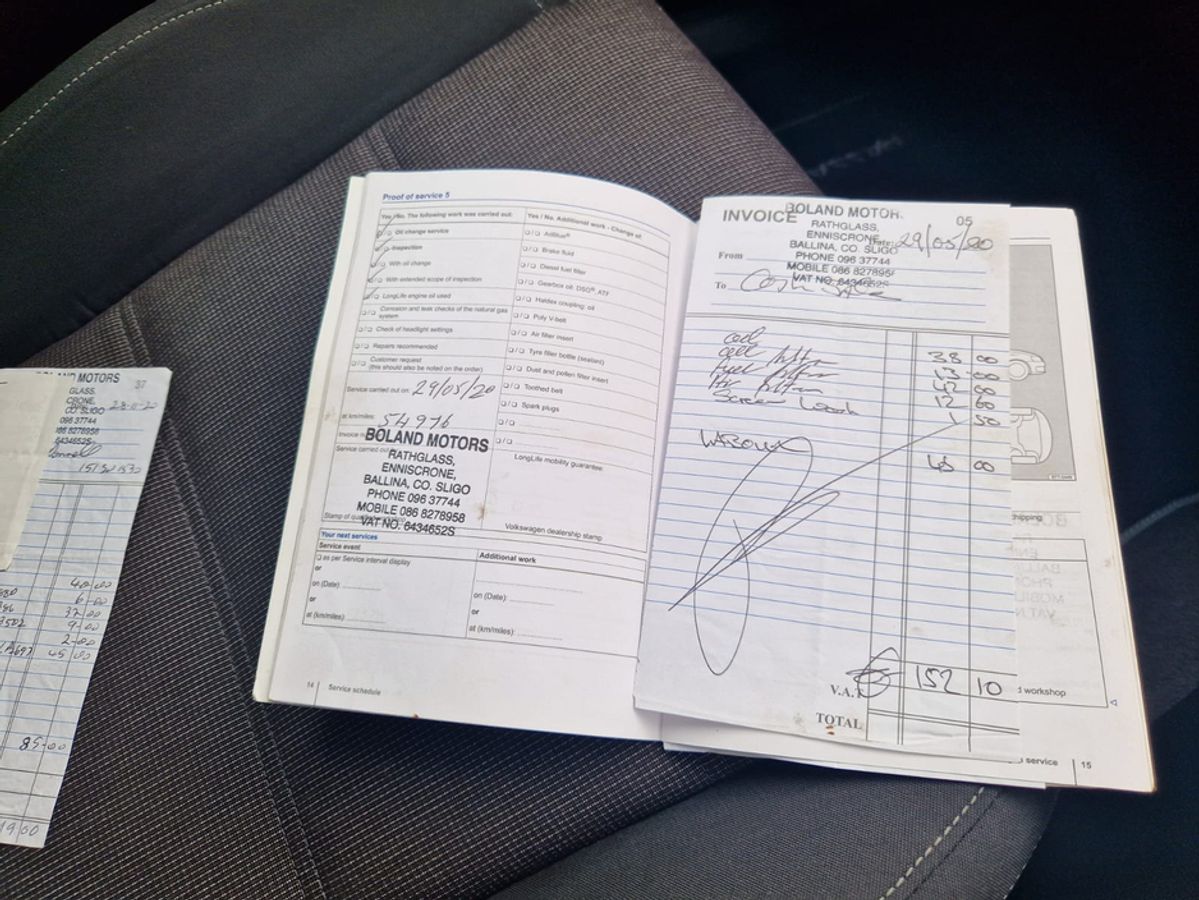 Proof of service 5
Yes / No. The following work was carried out:
Oil change service
Inspection
With oil change
With extended scope of inspection
LongLife engine oil used
Corrosion and leak checks of the natural gas
system
Check of headlight settings
Repairs recommended
Customer request
(this should also be noted on the order)
Service carried out on: 29/05/20
at km/miles: 54976
BOLAND MOTORS
RATHGLASS,
ENNISCRONE,
BALLINA, CO. SLIGO
PHONE 096 37744
MOBILE 086 8278958
VAT NO. 6434652S
Yes / No. Additional work - Change of:
AdBlue®
Brake fluid
Diesel fuel filter
Gearbox oil: DSG®, ATF
Haldex coupling: oil
Poly V-belt
Air filter insert
Tyre filler bottle (sealant)
Dust and pollen filter insert
Toothed belt
Spark plugs
LongLife mobility guarantee:
Volkswagen dealership stamp
Your next services
Service event
as per Service interval display
or
on (Date)
or
at (km/miles)
Additional work
on (Date):
or
at (km/miles):
14 Service schedule
INVOICE
05
BOLAND MOTOR
RATHGLASS,
ENNISCRONE
BALLINA, CO. SLIGO
PHONE 096 37744
MOBILE 086 827895
VAT NO. 6434652S
Date: 29/05/20
From
To Cash
38 00
12 60
1 50
LABOUR
45 00
V.A.T
152 10
TOTAL
workshop
service 15
MOTORS 37
GLASS,
CRONE,
CO. SLIGO
096 37744
086 8278958
6434652S
40-00
6-00
37-00
9-00
2-00
45 00
85-00
19 00